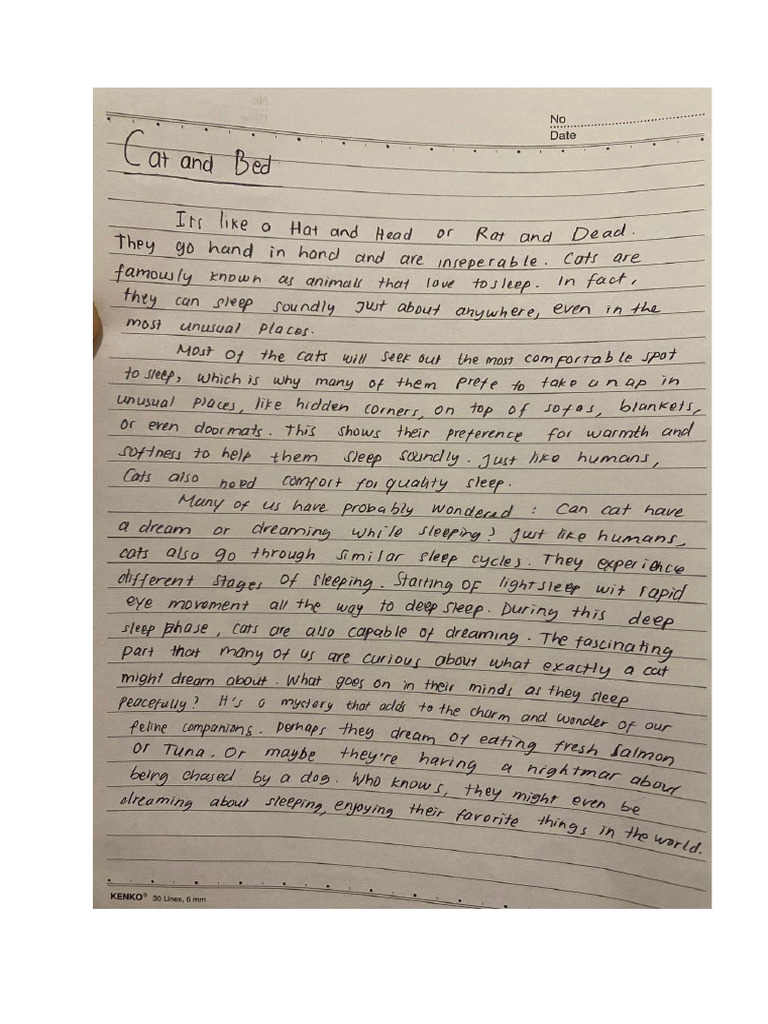 No
Date
Cat and Bed
Its like a Hat and Head or Rat and Dead.
They go hand in hand and are inseperable. Cats are
famously known as animals that love to sleep. In fact,
they can sleep soundly just about anywhere, even in the
most unusual places.
Most of the cats will seek out the most comfortable spot
to sleep, which is why many of them prefe to take a nap in
unusual places, like hidden corners, on top of sofas, blankets,
or even doormats. This shows their preference for warmth and
softness to help them sleep soundly. Just like humans,
Cats also need comfort for quality sleep.
Many of us have probably wondered : Can cat have
a dream or dreaming while sleeping? Just like humans,
cats also go through similar sleep cycles. They experience
different stages of sleeping. Starting of light sleep wit rapid
eye movement all the way to deep sleep. During this deep
sleep phase, cats are also capable of dreaming. The fascinating
part that many of us are curious about what exactly a cat
might dream about. What goes on in their minds as they sleep
peacefully? It's a mystery that adds to the charm and wonder of our
feline companions. Perhaps they dream of eating fresh Salmon
or Tuna. Or maybe they're having a nightmar about
being chased by a dog. Who knows, they might even be
dreaming about sleeping, enjoying their favorite things in the world.
KENKO® 30 Lines, 6 mm